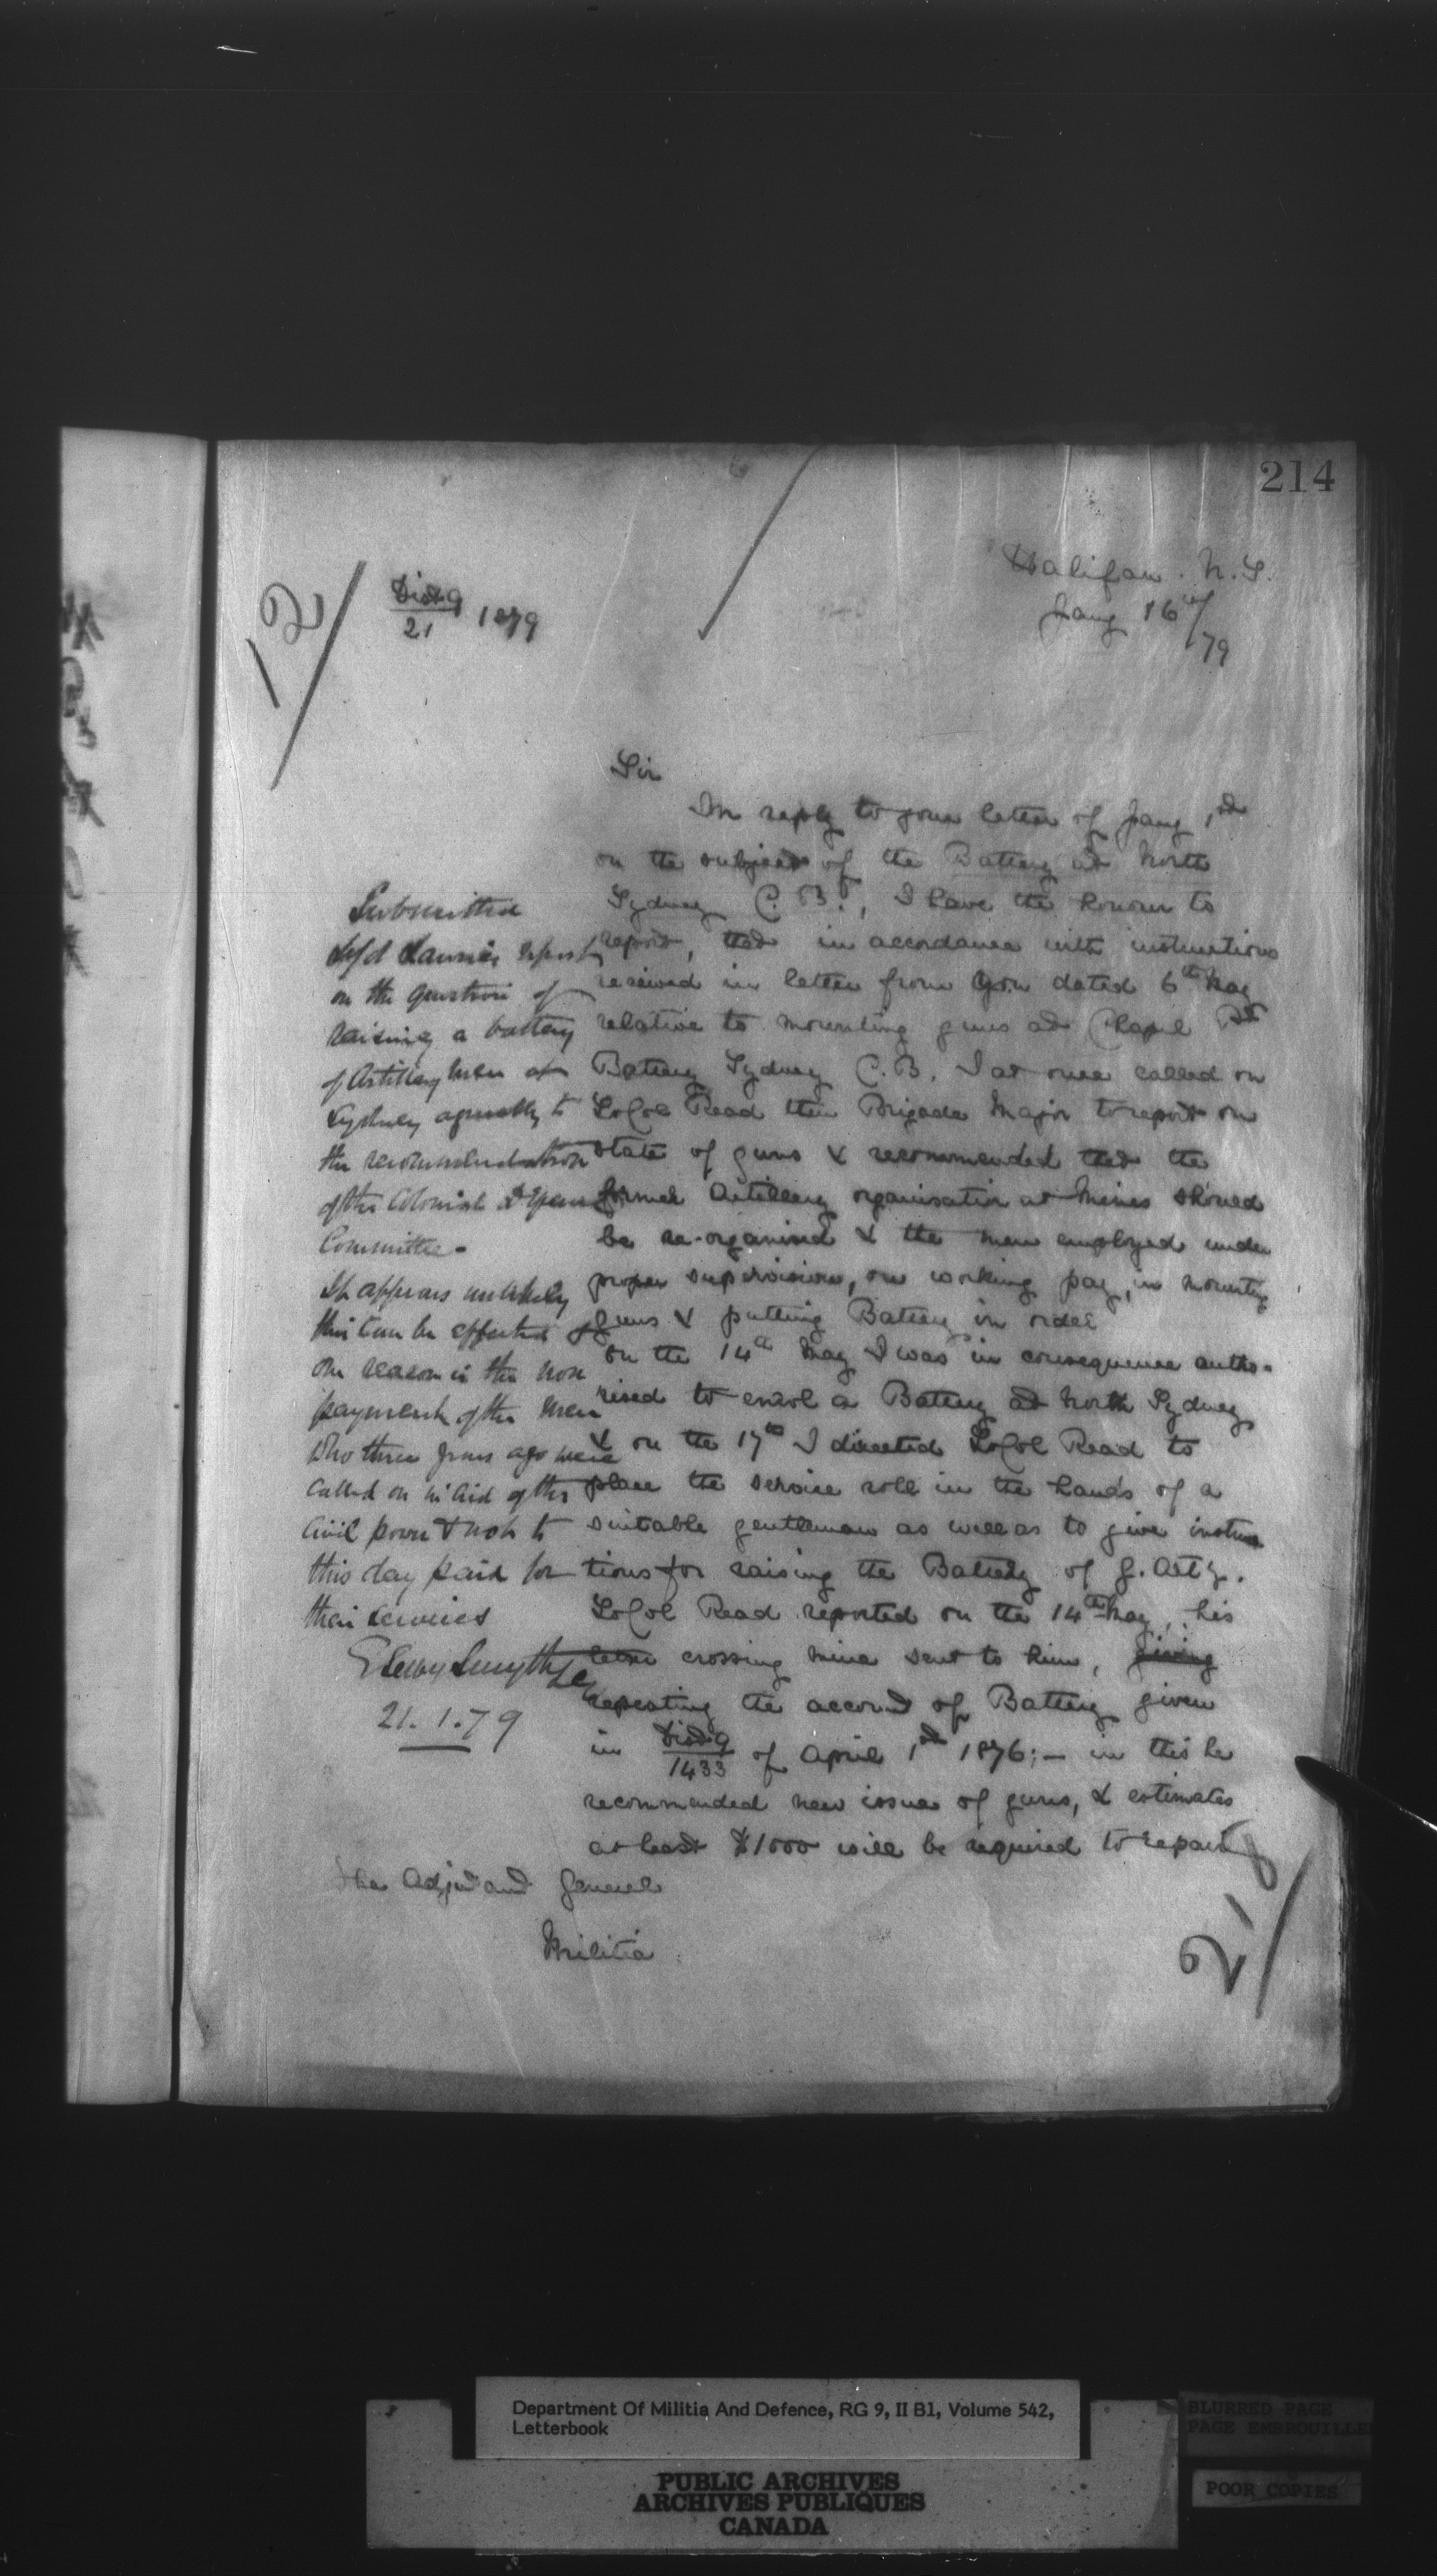 214
Halifax. N.S.
Jany 16th/79
12/
Dist 9
21
1879
Sir
In reply to your letter of Jany 1st
on the subject of the Battery at North
Sydney C.B., I have the honour to
report, that in accordance with instructions
received in letter from you dated 6th May
relative to mounting guns at Chapel Pt
Battery Sydney C.B. I at once called on
Lt Col Read then Brigade Major to report on
state of guns & recommended that the
former Artillery organisation at Mines should
be re-organised & the men employed under
proper supervision, on working pay, in mounting
guns & putting Battery in order
on the 14th May I was in consequence autho-
rised to enrol a Battery at North Sydney
& on the 17th I directed Lt Col Read to
place the service roll in the hands of a
suitable gentleman as well as to give instruc
tions for raising the Battery of G. Arty.
Lt Col Read reported on the 14th May, his
letter crossing mine sent to him, giving
repeating the account of Battery given
in Dist 9
1433
of April 1st 1876; – in this he
recommended new issue of guns, & estimates
at least $1000 will be required to repair
The Adjutant General
Militia
2/
Submitted
Laurie's report
on the question of
raising a battery
of Artillery men at
Sydney agreeably to
the recommendation
of the Colonial Defence
Committee -
It appears unlikely
this can be effected
one reason is the non
payment of the men
who three years ago were
called on in aid of the
Civil power & not to
this day paid for
their services
E Selby Smyth
21.1.79
Department Of Militia And Defence, RG 9, II B1, Volume 542,
Letterbook
PUBLIC ARCHIVES
ARCHIVES PUBLIQUES
CANADA
BLURRED PAGE
PAGE EMBROUILLE
POOR COPIES